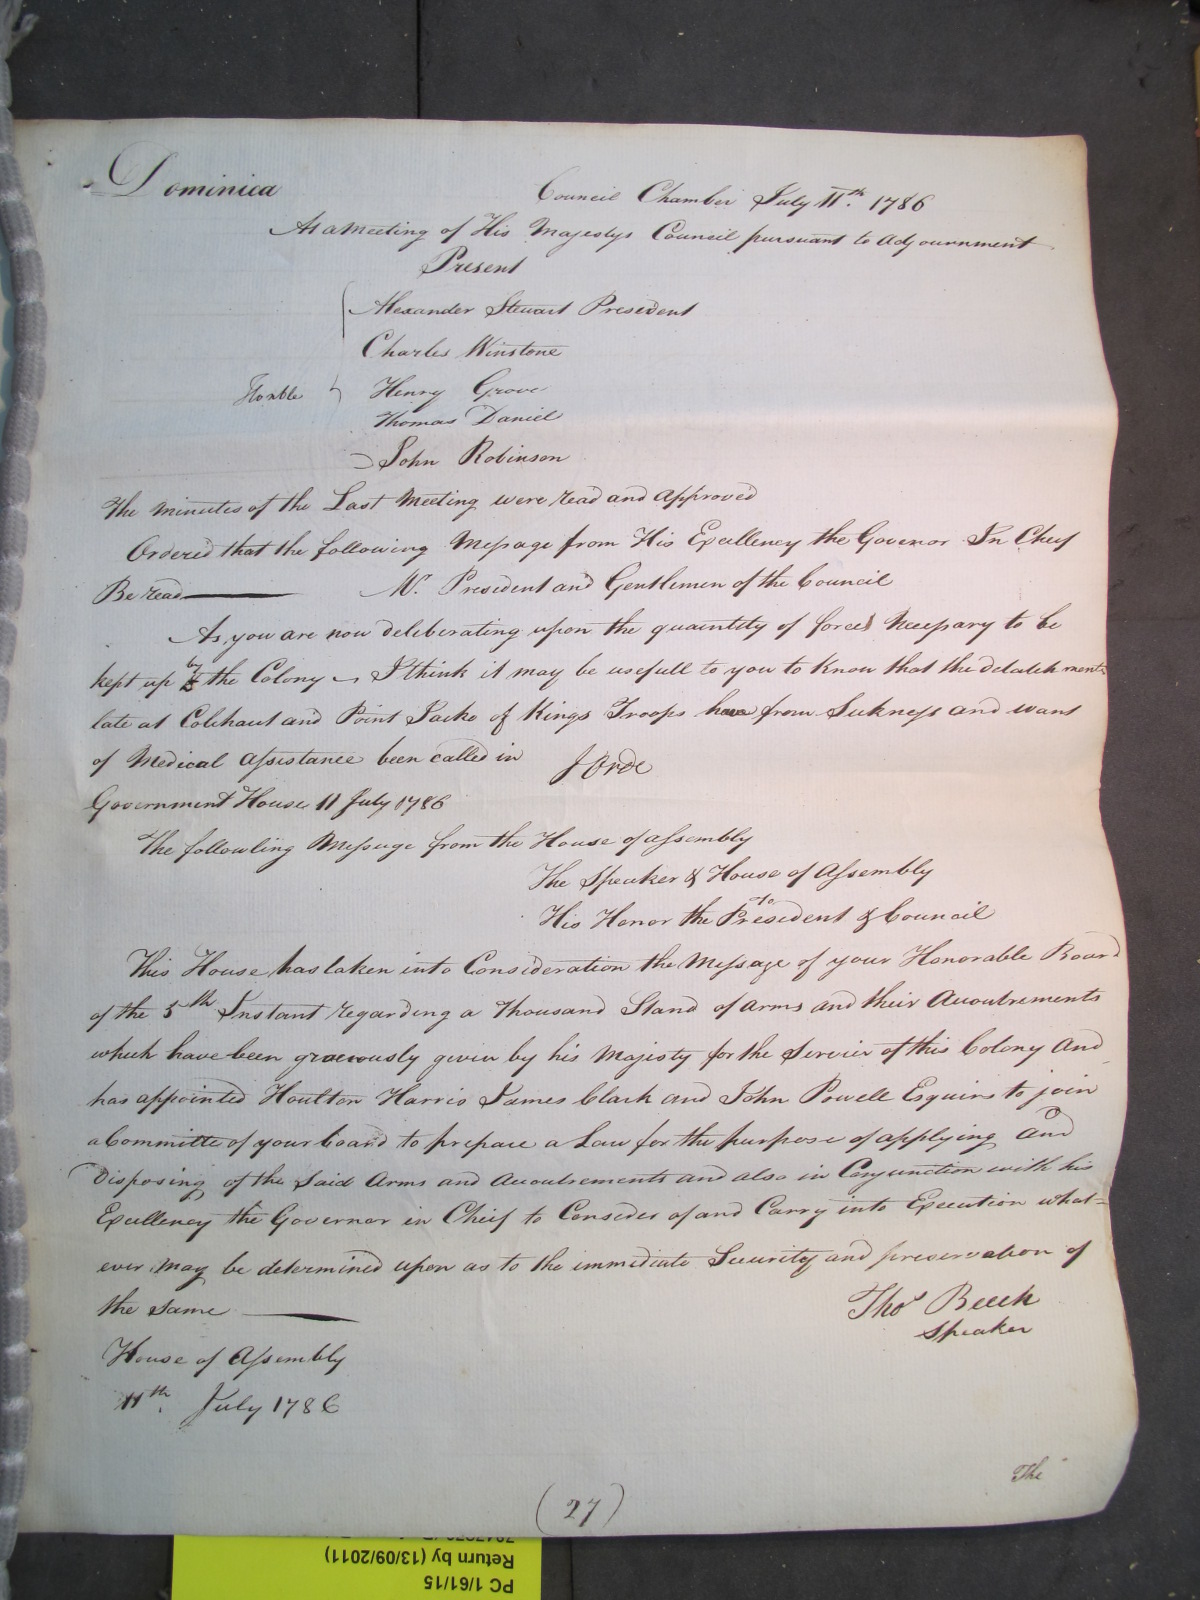 Dominica
Council Chamber July 11th. 1786
At a Meeting of His Majestys Council pursuant to Adjournment
Present
Alexander Stewart President
Charles Winstone
Honble Henry Grove
Thomas Daniel
John Robinson
The Minutes of the Last Meeting were read and approved
Ordered that the following Message from His Excellency the Governor In Cheif
Be read
Mr. President and Gentlemen of the Council
As you are now deliberating upon the quantity of forces Necessary to be
kept up by the Colony I think it may be usefull to you to know that the detachments
late at Colehaut and Point Jacko of Kings Troops have from Sickness and want
of Medical assistance been called in
J Orde
Government House 11 July 1786
The following Message from the House of Assembly
The Speaker & House of Assembly
to
His Honor the President & Council
This House has taken into Consideration the Message of your Honorable Board
of the 5th Instant regarding a Thousand Stand of Arms and their Accoutrements
which have been graciously given by his Majesty for the Service of this Colony And
has appointed Houlton Harris James Clark and John Powell Esquires to join
a Committe of your board to prepare a Law for the purpose of applying and
disposing of the Said Arms and Accoutrements and also in Conjunction with his
Excellency the Governor in Cheif to Consider of and Carry into Execution what=
ever may be determined upon as to the immediate Security and preservation of
the same
Thos Beech
Speaker
House of Assembly
11th. July 1786
The
(27)
Return by (13/09/2011)
PC 1/61/15